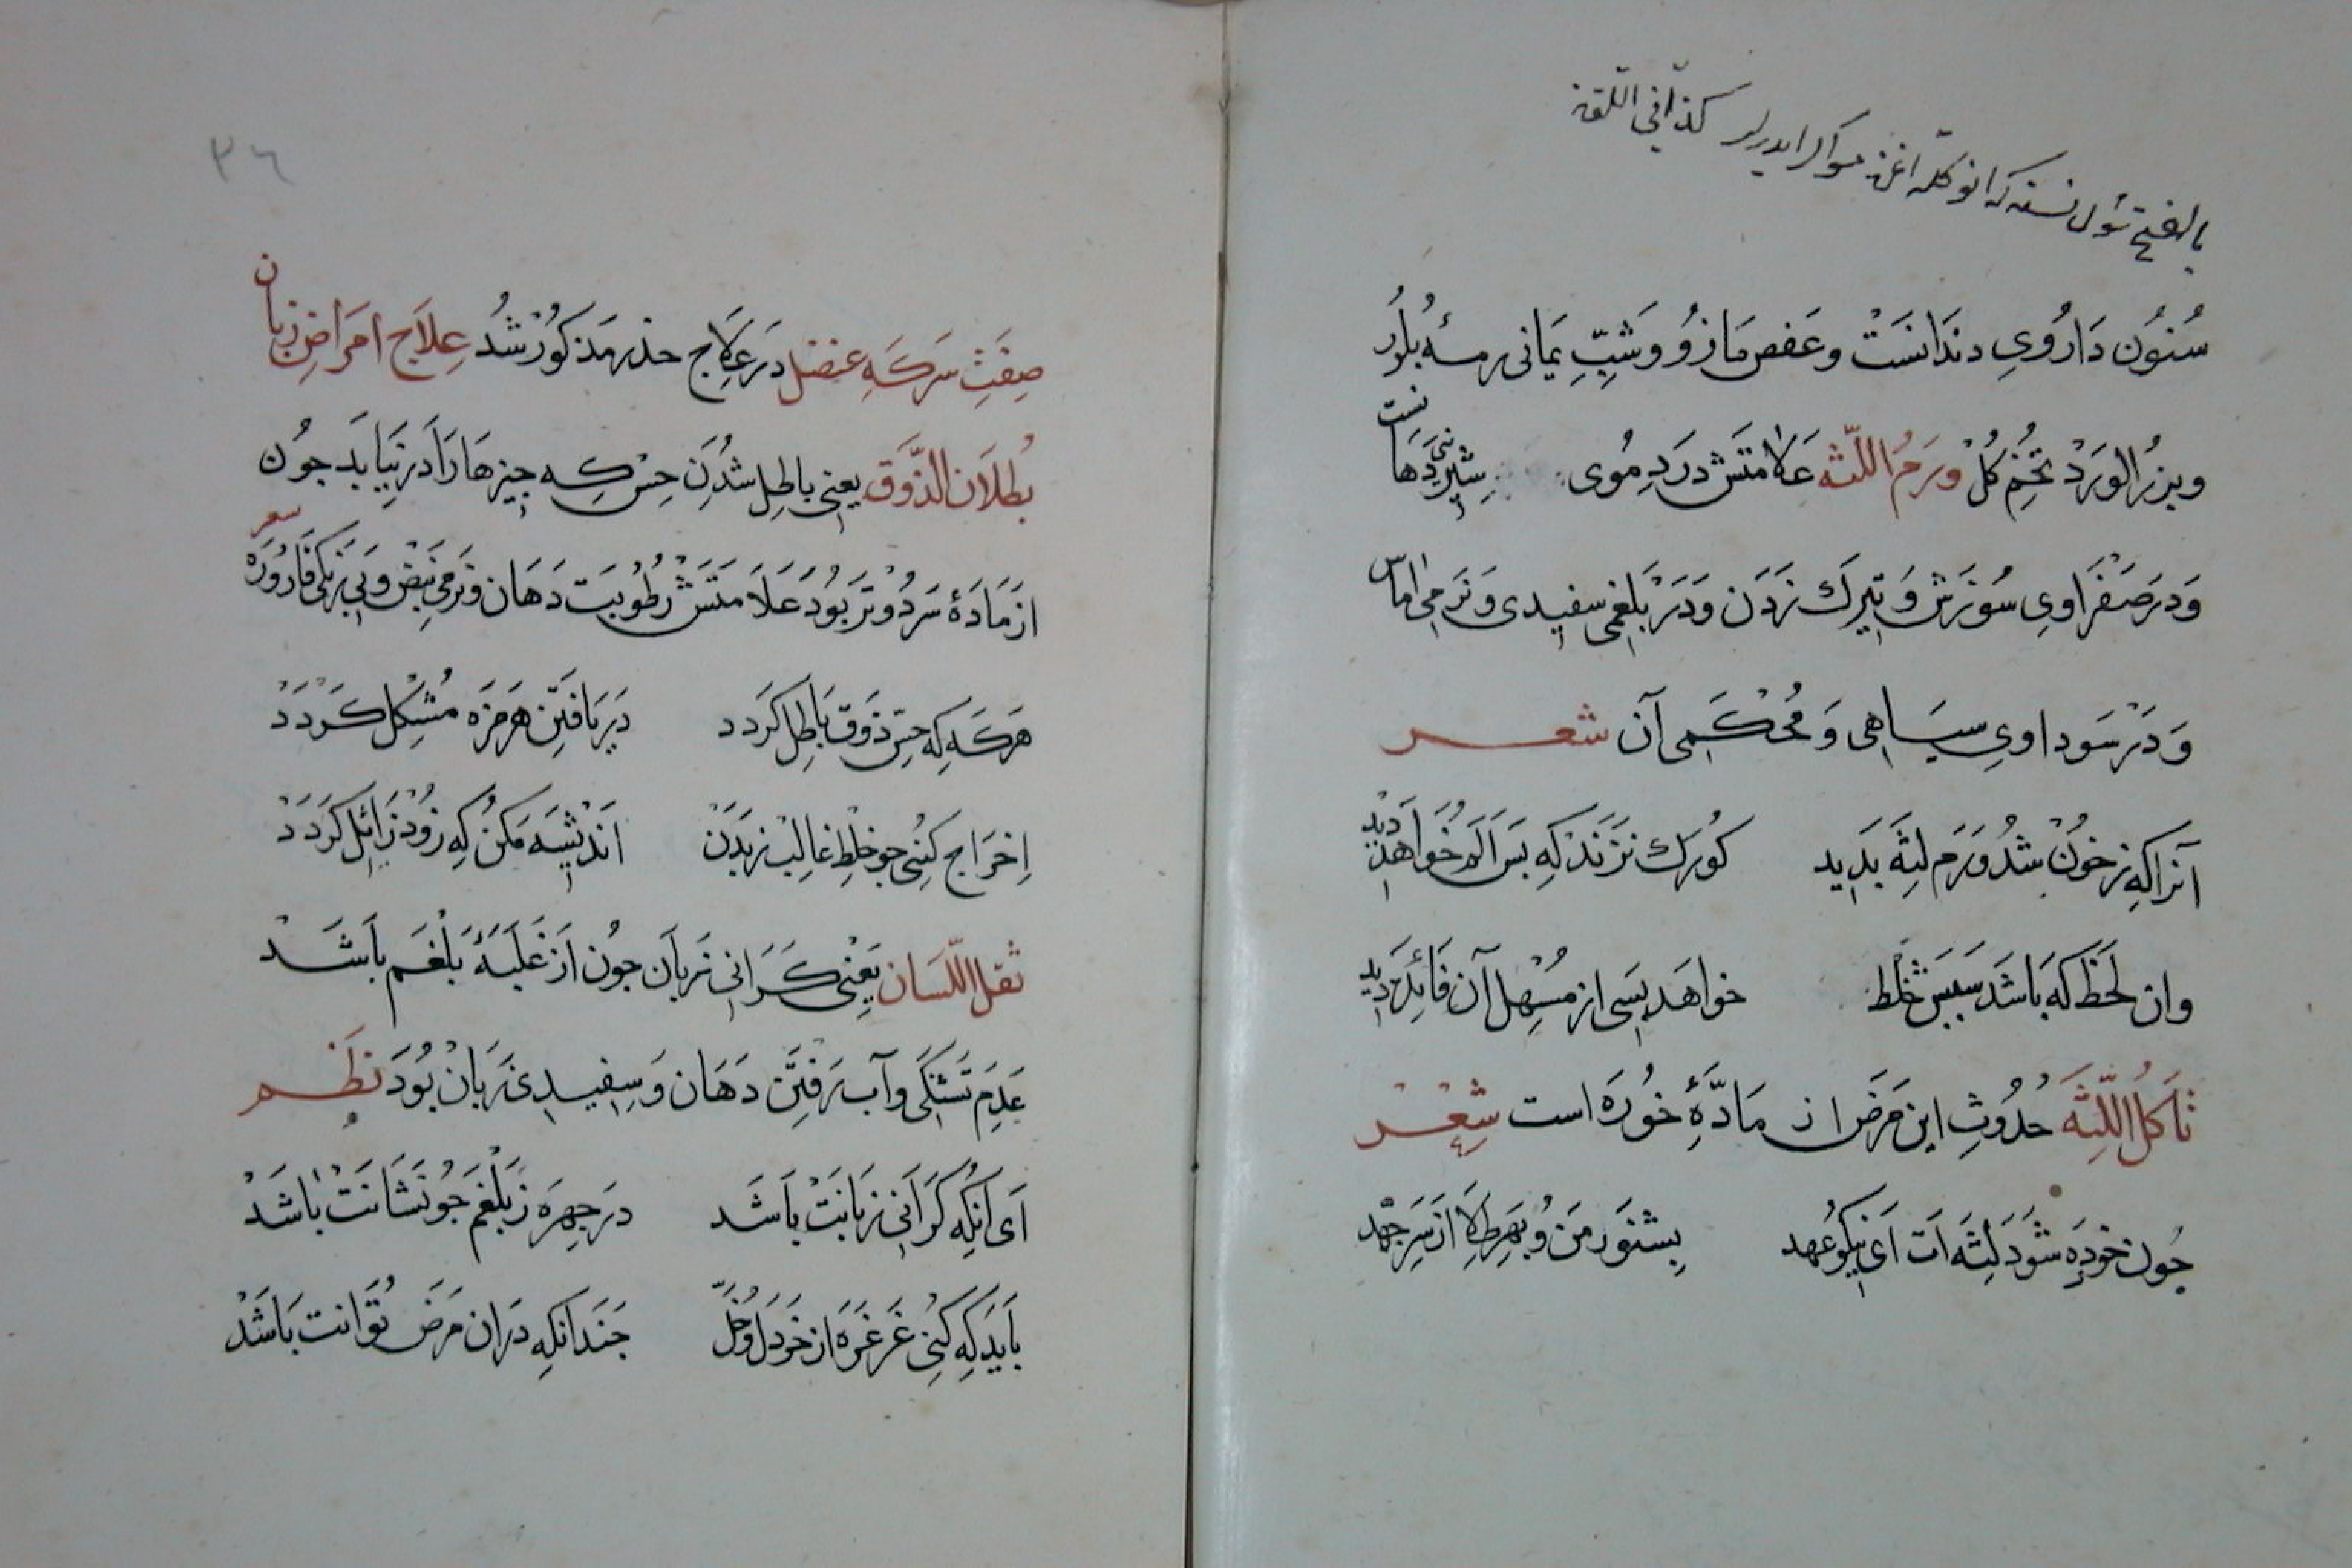 بالفتح شول نسنه که انوکله اغز کذا فی اللغة
سُنُون دَارُویِ دندَانسَتْ وعَفص مَازوُ وَشَبِّ یَمانی سرمهٔ بُلوُر
وبزرُ الورَدْ تخُمِ کلُ ورَمُ اللّثه عَلامَتَش دَردِ مُوی شیرینیَ دَهَانست
وَدرَ صَفرَاوِی سُوزَش وَ تیرك زدَن وَدرَ بَلغمی سفیدی وَ نَرمی اماس
وَ درَ سَوداویِ سیَاهی وَ مُحکمَی آن شعر
آنراکِه زخوُن شدُ وَرَم لِثَه بدَید کوُرك نزنَد که بسَ المَ خُواهَد دید
وان لَحظَ که بَاشَد سَبَبَش خلط خواهَد بسَی از مسُهِل آن فَائِدَه دید
تَاکلُ اللِّثَه حُدُوثِ این مَرَض از مَادَّهِٔ خوُرَه است شِعْر
جُون خوُردِه شوَد لَثِه اَت اَی نیکوُ عهد بِشنوَ زمَن وُ بهَرِ طِلا از سَرِ جَهد
٣٦
صِفَتِ سَرکَه عنصل درَ عِلاج حذر مَذکوُر شُدْ عِلاَج امرَاضِ زبان
بُطلاَن الذَّوَق یعنی باطِل شدُن حِسّ کِه چیزهَا رَا دَر نیَابَد جوُن
از مَادَهٔ سَردُ وترَ بوُد عَلاَمَتَش رُطوُبَت دَهَان وَنَرمی نَبض وبَی رنکی قَارُورَه شعر
هرَکَه کِه حسِّ ذَوَق بَاطِل کَردَد دَر یَافتِن هَر مزَه مُشکِل کَردَدْ
اِخرَاج کُنیِ جو خِلطِ غَالِب زبَدَن اَندْیشَه مَکنُ کِه زُودْ زَائِل کَردَدْ
ثقل اللّسَان یَعْنی کَرَانی زَبان جوُن اَز غَلبَهٔ بَلْغَم باَشَدْ
عَدَمِ تَشنکَی وآب رَفتن دَهَان وَ سِفیدِی زَبانْ بوُدَ نَظْم
اَی انکه کَرَانی زبَانَت باَشَد درَ جهِرَه زبَلْغَم جوُ نشَانَتْ باشَدْ
بَایَد کِه کنُی غرَغرَه از خرَدَل وُ خَلّ جَندَانکِه درَان مَرَض تُوَانت بَاشَدْ